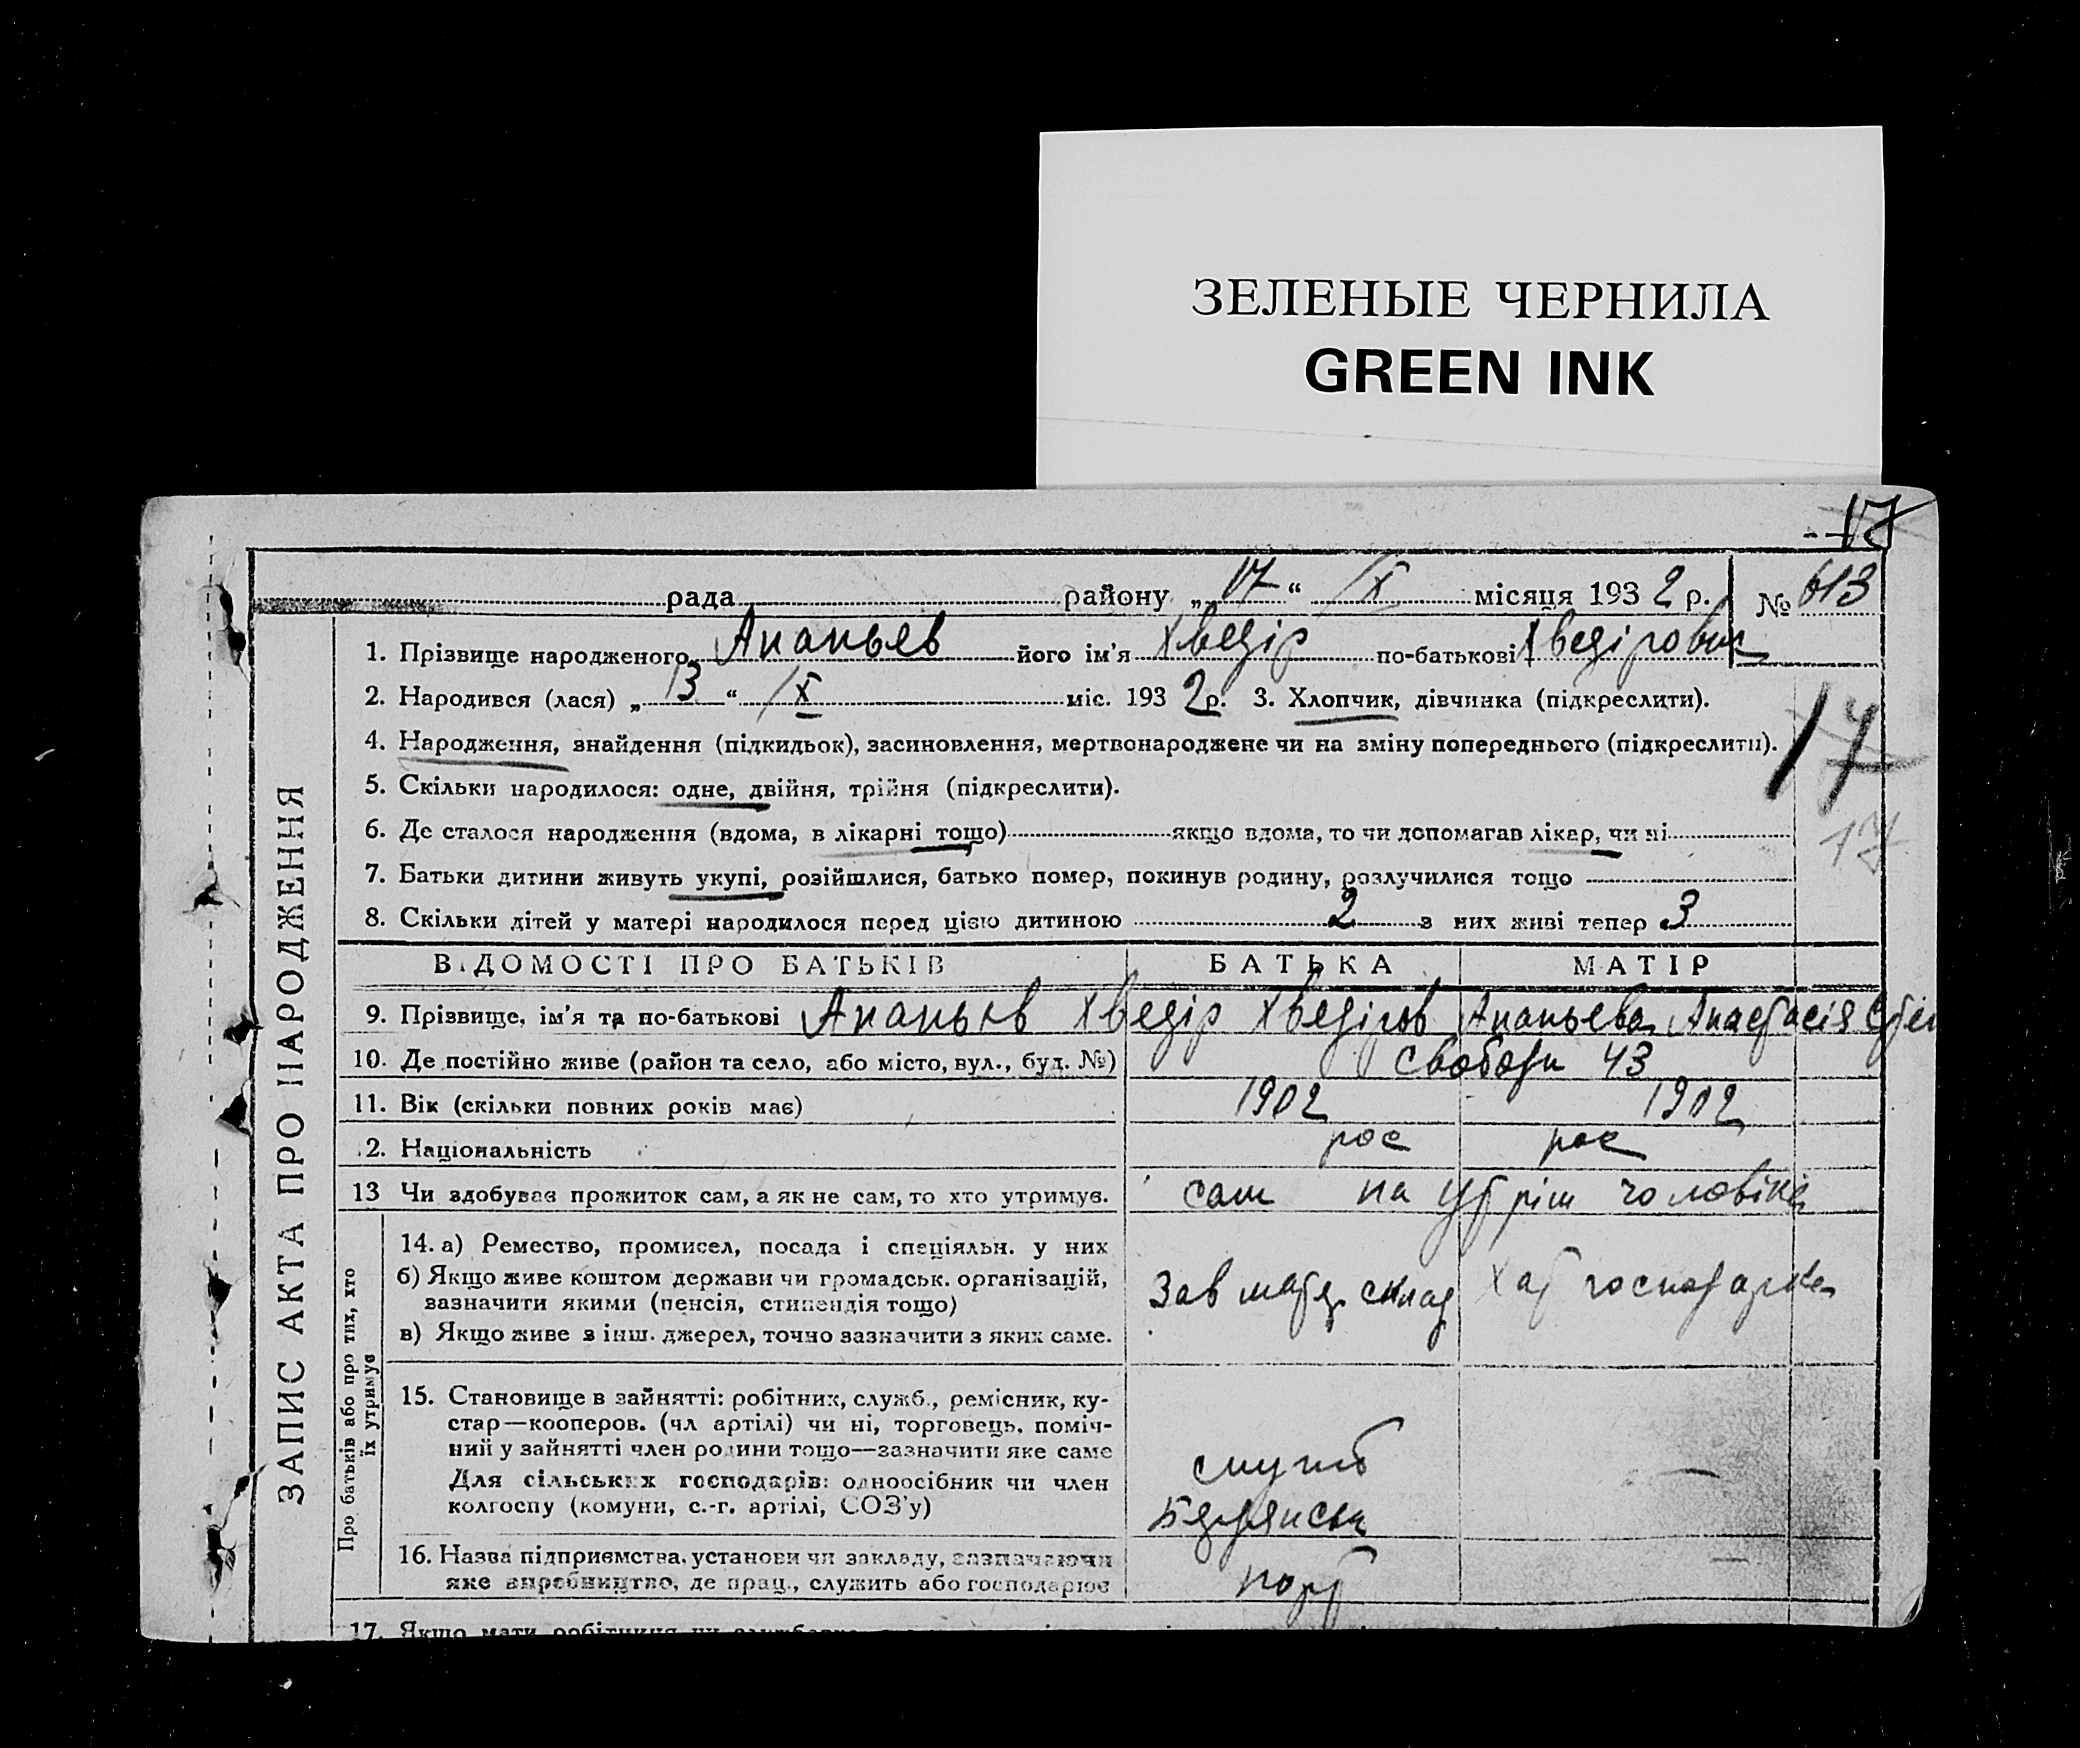 ЗЕЛЕНЫЕ ЧЕРНИЛА
GREEN INK
17
рада района „17“ IX місяця 1932 р. № 613
1. Прізвище народженого Ананьев його ім'я Хведір по-батькові Хведірович
2. Народився (лася) „13“ IX міс. 1932 р. 3. Хлопчик, дівчинка (підкреслити).
4. Народження, знайдення (підкидьок), засиновлення, мертвонароджене чи на зміну попереднього (підкреслити).
17
5. Скільки народилося: одне, двійня, трійня (підкреслити).
6. Де сталося народження (вдома, в лікарні тощо) якщо вдома, то чи допомагав лікар, чи ні
17
7. Батьки дитини живуть укупі, розійшлися, батько помер, покинув родину, розлучилися тощо
8. Скільки дітей у матері народилося перед цією дитиною 2 з них живі тепер 3
ЗАПИС АКТА ПРО НАРОДЖЕННЯ
ВІДОМОСТІ ПРО БАТЬКІВ БАТЬКА МАТІР
9. Прізвище, ім'я та по-батькові Ананьев Хведір Хведіров Ананьева Анастасія
10. Де постійно живе (район та село, або місто, вул., буд. №) Свободи 43
11. Вік (скільки повних років має) 1902 1902
12. Національність рос рос
13 Чи здобуває прожиток сам, а як не сам, то хто утримує. сам на утрім чоловіка
Про батьків або про тих, хто їх утримує
14. а) Ремество, промисел, посада і спеціяльн. у них
б) Якщо живе коштом держави чи громадськ. організацій,
зазначити якими (пенсія, стипендія тощо) Зав матер. склад Хат господарка
в) Якщо живе з інш. джерел, точно зазначити з яких саме.
15. Становище в зайнятті: робітник, служб., ремісник, ку-
стар—кооперов. (чл артілі) чи ні, торговець, поміч-
ний у зайнятті член родини тощо—зазначити яке саме служб —
Для сільських господарів: одноосібник чи член
колгоспу (комуни, с.-г. артілі, СОЗ'у) Бердянськ
16. Назва підприємства, установи чи закладу, зазначаючи —
яке виробництво, де прац., служить або господарює порт
17. Якщо мати робітниця чи